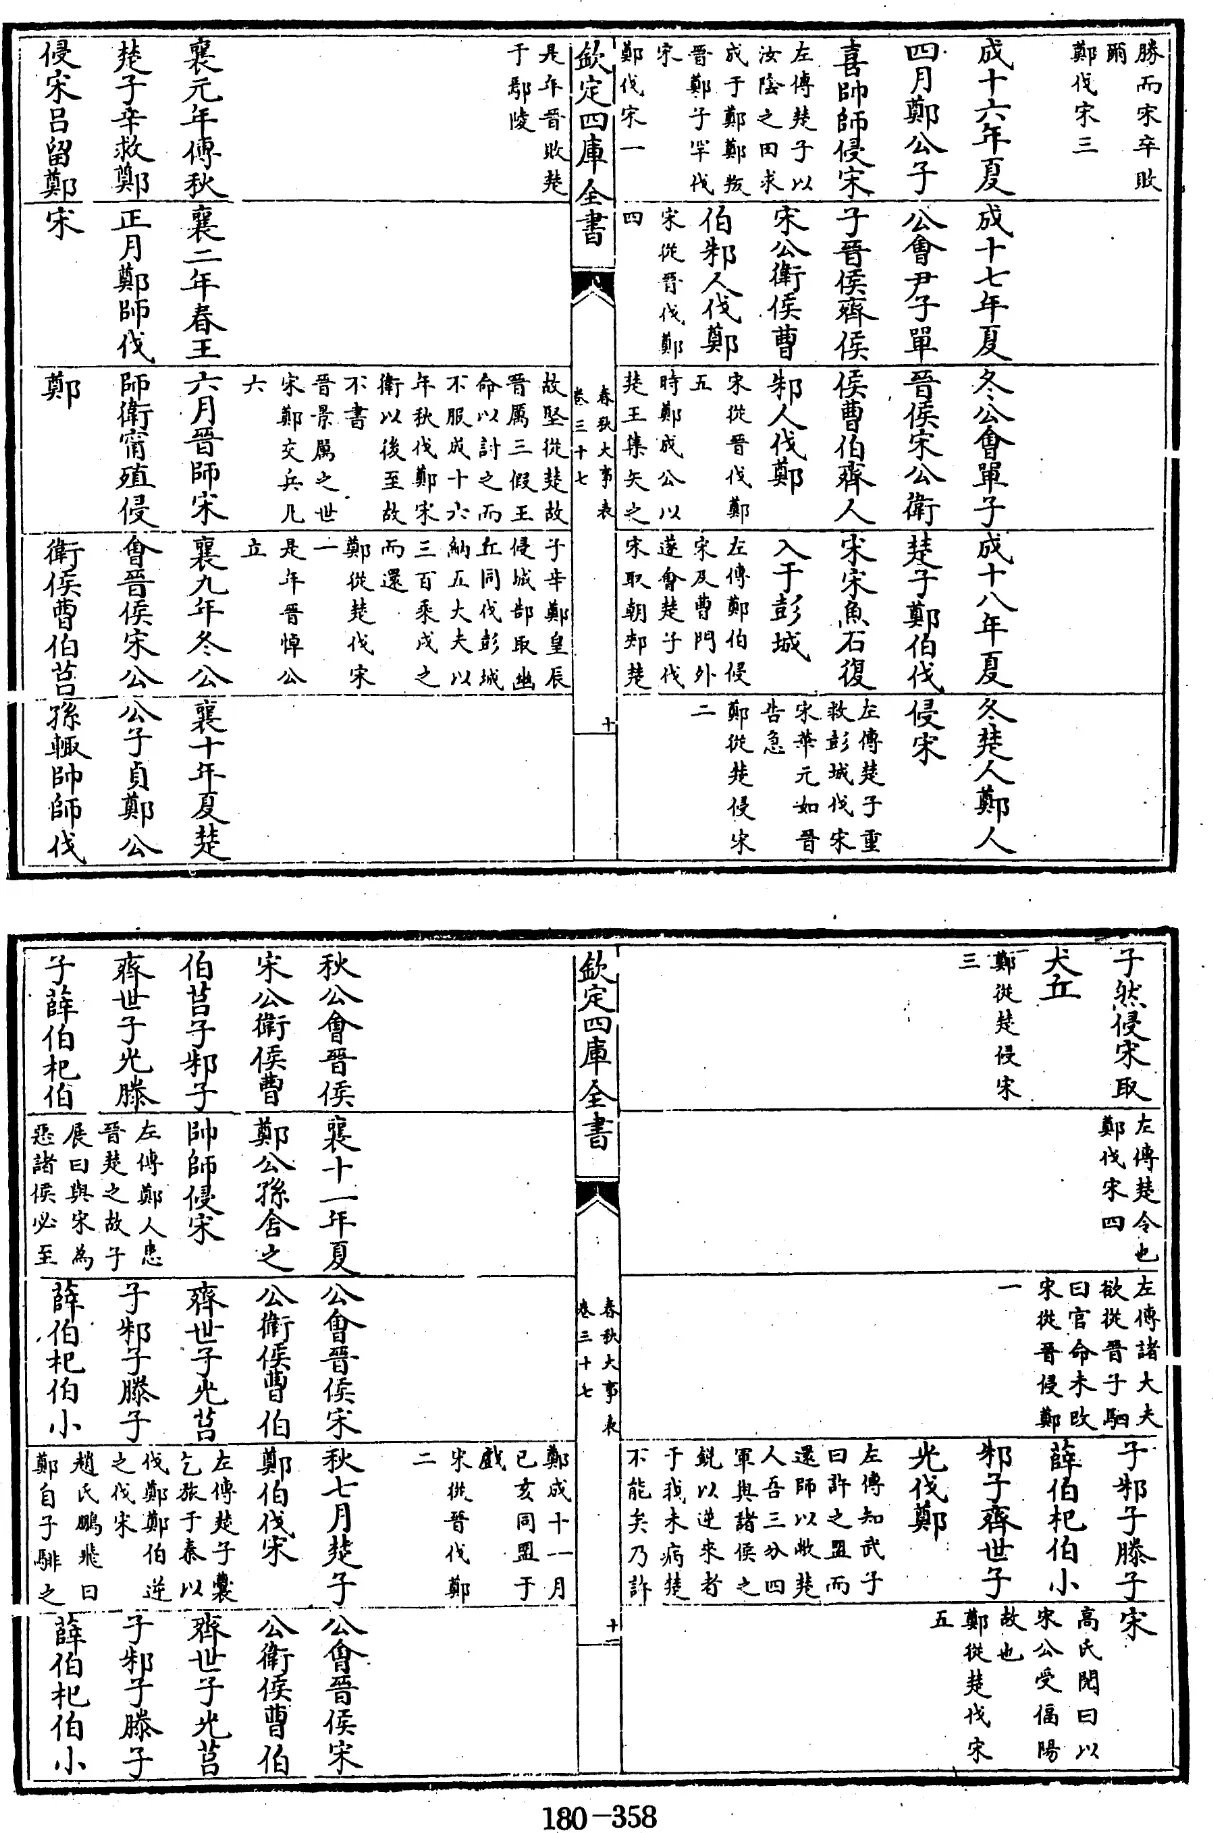 勝而宋卒敗
爾
鄭伐宋三
成十六年夏
四月鄭公子
喜帥師侵宋
左傳楚子以
汝陰之田求
成于鄭鄭叛
晉鄭子罕伐
宋
鄭伐宋一
成十七年夏
公會尹子單
子晉侯齊侯
宋公衛侯曹
伯邾人伐鄭
宋從晉伐鄭
四
冬公會單子
晉侯宋公衛
侯曹伯齊人
邾人伐鄭
宋從晉伐鄭
五
時鄭成公以
楚王集矢之
成十八年夏
楚子鄭伯伐
宋宋魚石復
入于彭城
左傳鄭伯侵
宋及曹門外
遂會楚子伐
宋取朝郟楚
冬楚人鄭人
侵宋
左傳楚子重
救彭城伐宋
宋華元如晉
告急
鄭從楚侵宋
二
欽定四庫全書
春秋大事表
卷三十七
十
是年晉敗楚
于鄢陵
襄元年傳秋
楚子辛救鄭
侵宋呂留鄭
襄二年春王
正月鄭師伐
宋
故堅從楚故
晉厲三假王
命以討之而
不服成十六
年秋伐鄭宋
衛以後至故
不書
晉景厲之世
宋鄭交兵凡
六
六月晉師宋
師衛甯殖侵
鄭
子辛鄭皇辰
侵城郜取幽
丘同伐彭城
納五大夫以
三百乘戍之
而還
鄭從楚伐宋
一
是年晉悼公
立
襄九年冬公
會晉侯宋公
衛侯曹伯莒
襄十年夏楚
公子貞鄭公
孫輒帥師伐
子然侵宋取
犬丘
鄭從楚侵宋
三
左傳楚令也
鄭伐宋四
左傳諸大夫
欲從晉子駟
曰官命未改
宋從晉侵鄭
一
子邾子滕子
薛伯杞伯小
邾子齊世子
光伐鄭
左傳知武子
曰許之盟而
還師以敝楚
人吾三分四
軍與諸侯之
銳以逆來者
于我未病楚
不能矣乃許
宋
高氏閌曰以
宋公受偪陽
故也
鄭從楚伐宋
五
欽定四庫全書
春秋大事表
卷三十七
十一
秋公會晉侯
宋公衛侯曹
伯莒子邾子
齊世子光滕
子薛伯杞伯
襄十一年夏
鄭公孫舍之
帥師侵宋
左傳鄭人患
晉楚之故子
展曰與宋為
惡諸侯必至
公會晉侯宋
公衛侯曹伯
齊世子光莒
子邾子滕子
薛伯杞伯小
鄭成十一月
己亥同盟于
戲
宋從晉伐鄭
二
秋七月楚子
鄭伯伐宋
左傳楚子囊
乞旅于秦以
伐鄭鄭伯逆
之伐宋
趙氏鵬飛曰
鄭自子駢之
公會晉侯宋
公衛侯曹伯
齊世子光莒
子邾子滕子
薛伯杞伯小
180-358